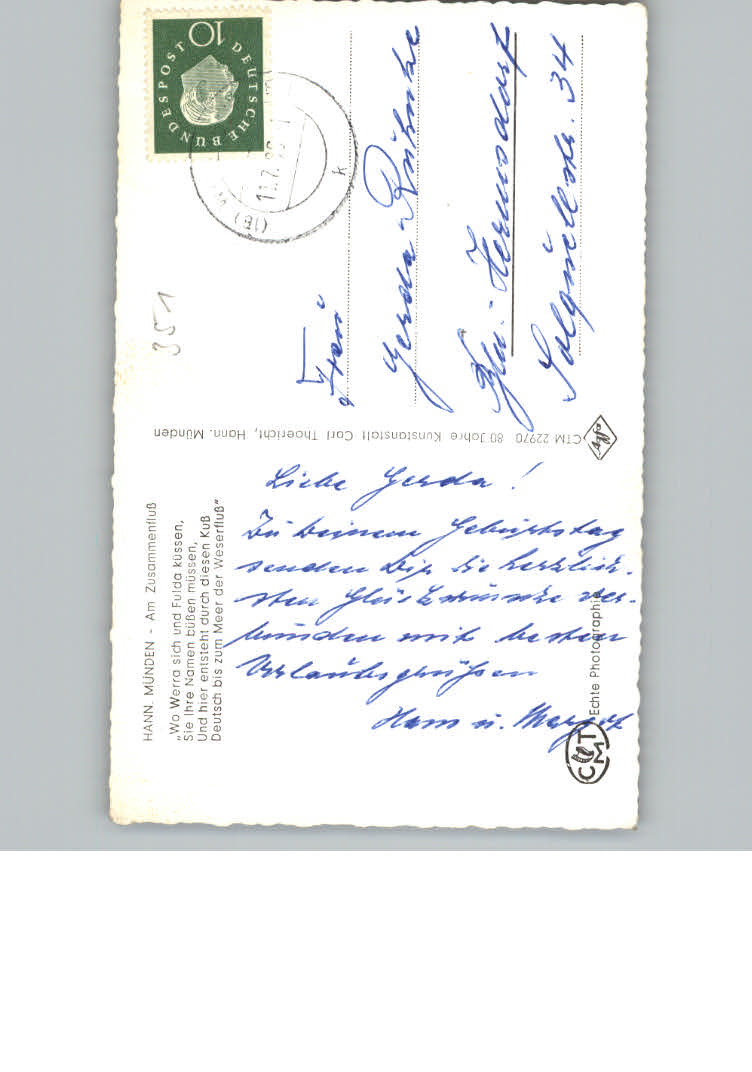 HANN. MÜNDEN - Am Zusammenfluß
„Wo Werra sich und Fulda küssen,
Sie Ihre Namen büßen müssen,
Und hier entsteht durch diesen Kuß
Deutsch bis zum Meer der Weserfluß"
Liebe Gerda!
Zu Deinem Geburtstag
senden Dir die herzlich-
sten Glückwünsche ver-
bunden mit besten
Urlaubsgrüßen
Hans u. Margot
CTM 22970 80 Jahre Kunstanstalt Carl Thoericht, Hann. Münden
Agfa
Echte Photographie
CTM
DEUTSCHE BUNDESPOST
10
11.7.
k
351
Frau
Gerda
Bln.-Hermsdorf
Solquellstr. 34